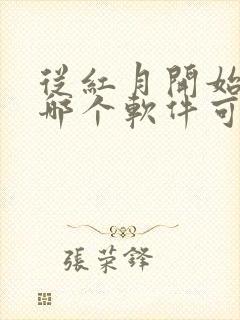 從紅月開始
哪个軟件可
張荣鋒